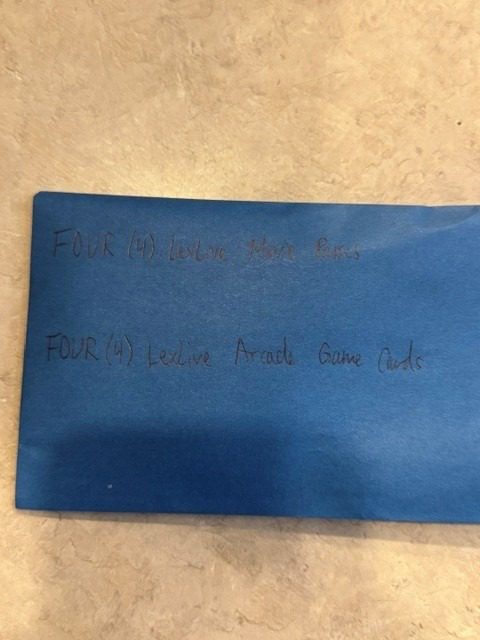 FOUR (4) LexLive Movie Passes
FOUR (4) LexLive Arcade Game Cards